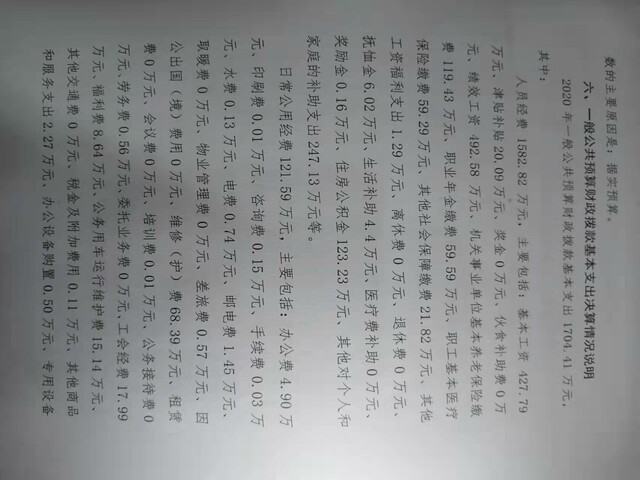 数的主要原因是：据实预算。
六、一般公共预算财政拨款基本支出决算情况说明
2020 年一般公共预算财政拨款基本支出 1704.41 万元，
其中：
人员经费 1582.82 万元，主要包括：基本工资 427.79
万元、津贴补贴 20.09 万元、奖金 0 万元、伙食补助费 0 万
元、绩效工资 492.58 万元、机关事业单位基本养老保险缴
费 119.43 万元、职业年金缴费 59.59 万元、职工基本医疗
保险缴费 59.29 万元、其他社会保障缴费 21.82 万元、其他
工资福利支出 1.29 万元、离休费 0 万元、退休费 0 万元、
抚恤金 6.02 万元、生活补助 4.4 万元、医疗费补助 0 万元、
奖励金 0.16 万元、住房公积金 123.23 万元、其他对个人和
家庭的补助支出 247.13 万元等。
日常公用经费 121.59 万元，主要包括：办公费 4.90 万
元、印刷费 0.01 万元、咨询费 0.15 万元、手续费 0.03 万
元、水费 0.13 万元、电费 0.74 万元、邮电费 1.45 万元、
取暖费 0 万元、物业管理费 0 万元、差旅费 0.57 万元、因
公出国（境）费用 0 万元、维修（护）费 68.39 万元、租赁
费 0 万元、会议费 0 万元、培训费 0.01 万元、公务接待费 0
万元、劳务费 0.56 万元、委托业务费 0 万元、工会经费 17.99
万元、福利费 8.64 万元、公务用车运行维护费 15.14 万元、
其他交通费 0 万元、税金及附加费用 0.11 万元、其他商品
和服务支出 2.27 万元、办公设备购置 0.50 万元、专用设备